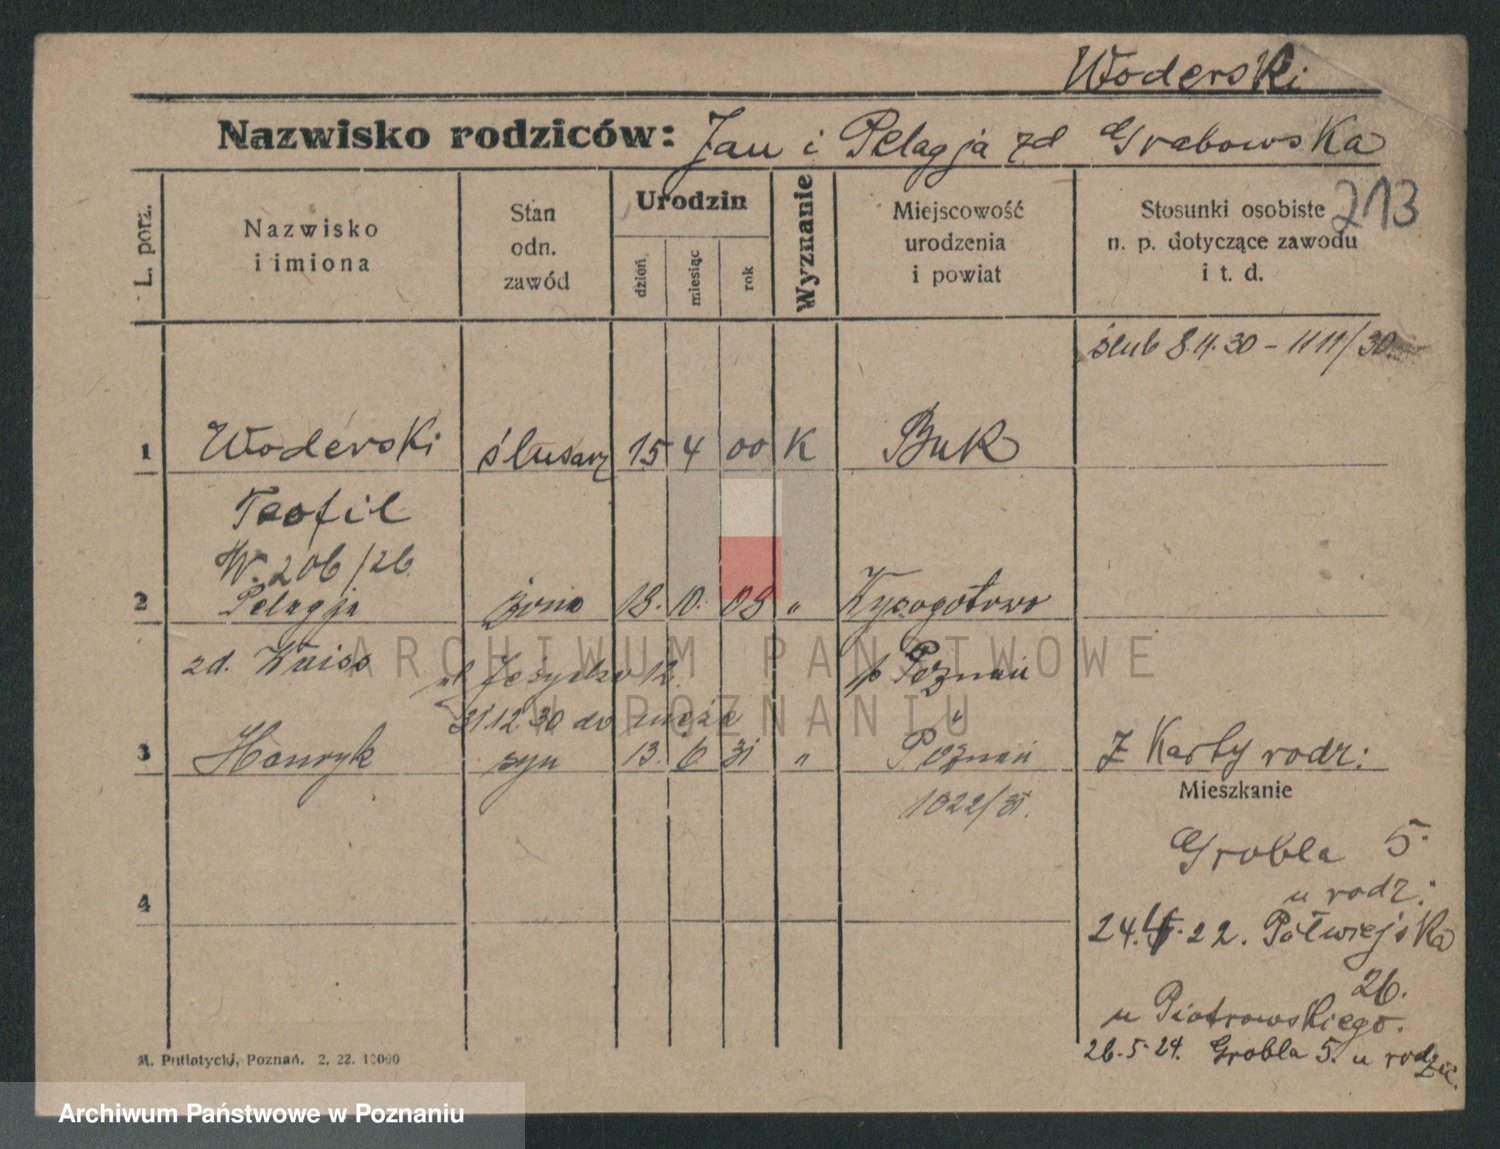 Woderski
Nazwisko rodziców: Jan i Pelagja zd Grabowska
213
L. porz.
Nazwisko
i imiona
Stan
odn.
zawód
Urodzin
dzień
miesiąc
rok
Wyznanie
Miejscowość
urodzenia
i powiat
Stosunki osobiste
n. p. dotyczące zawodu
i t. d.
ślub 8.11.30 - 1111/30
1 Woderski ślusarz 15 4 00 K Buk
Teofil
W. 206/26
2 Pelagja żona 18. 10. 09 " 
zd. Kniss
ul Jeżycka 12.
p. Poznań
31.12.30 do męża "
3 Henryk syn 13. 6 31 " Poznań
1022/31.
Z Karty rodz:
Mieszkanie
Grobla 5.
u rodz.
4
24.4.22. Półwiejska
26.
u Piotrowskiego.
26.5.24. Grobla 5. u rodzic.
M. Putiatycki, Poznań. 2. 22. 10000
ARCHIWUM PAŃSTWOWE
W POZNANIU
Archiwum Państwowe w Poznaniu